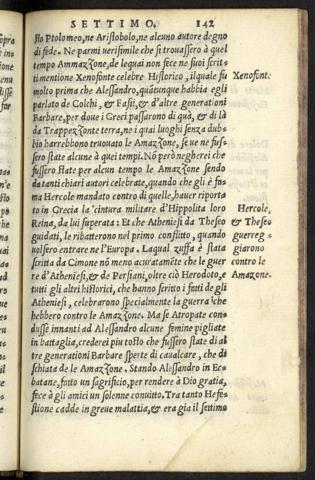 SETTIMO. 142
sto Ptolomeo, ne Aristobolo, ne alcuno autore degno
di fede. Ne parmi uerisimile che si trouassero à quel
tempo Ammazzone, de lequai non fece ne suoi scrit-
ti mentione Xenofonte celebre Historico, ilquale fu
Xenofonte
molto prima che Alessandro, quãtunque habbia egli
parlato de Colchi, & Fasii, & d'altre generationi
Barbare, per doue i Greci passarono di quà, & di là
da Trappezzonte terra, ne i quai luoghi senza dub-
bio harrebbono trouato le Amazzone, se ue ne fus-
sero state alcune à quei tempi. Nõ però negherei che
fussero state per alcun tempo le Amazzone sendo
da tanti chiari autori celebrate, quando che gli è fa-
ma Hercole mandato contro di quelle, hauer riporta
to in Grecia la cintura militare d'Hippolita loro
Hercole,
Reina, da lui superata: Et che Atheniesi da Theseo
& Theseo
guidati, le ributterono nel primo conflitto, quando
guerreg-
uolsero entrare ne l'Europa. Laqual zuffa è stata
giarono
scritta da Cimone nõ meno acuratamẽte che le guer
contro le
re d'Atheniesi, & de Persiani, oltre ciò Herodoto, e
Amazone.
tutti gli altri historici, che hanno scritto i fatti de gli
Atheniesi, celebrarono specialmente la guerra che
hebbero contro le Amazzone. Ma se Atropate con-
dusse innanti ad Alessandro alcune femine pigliate
in battaglia, crederei piu tosto che fussero state di al
tre generationi Barbare sperte di caualcare, che di
schiata de le Amazzone. Stando Alessandro in Ec-
batane, fatto un sagrificio, per rendère à Dio gratia,
fece à gli amici un solenne conuito. Tra tanto Hefe-
stione cadde in greue malattia, & era gia il settimo